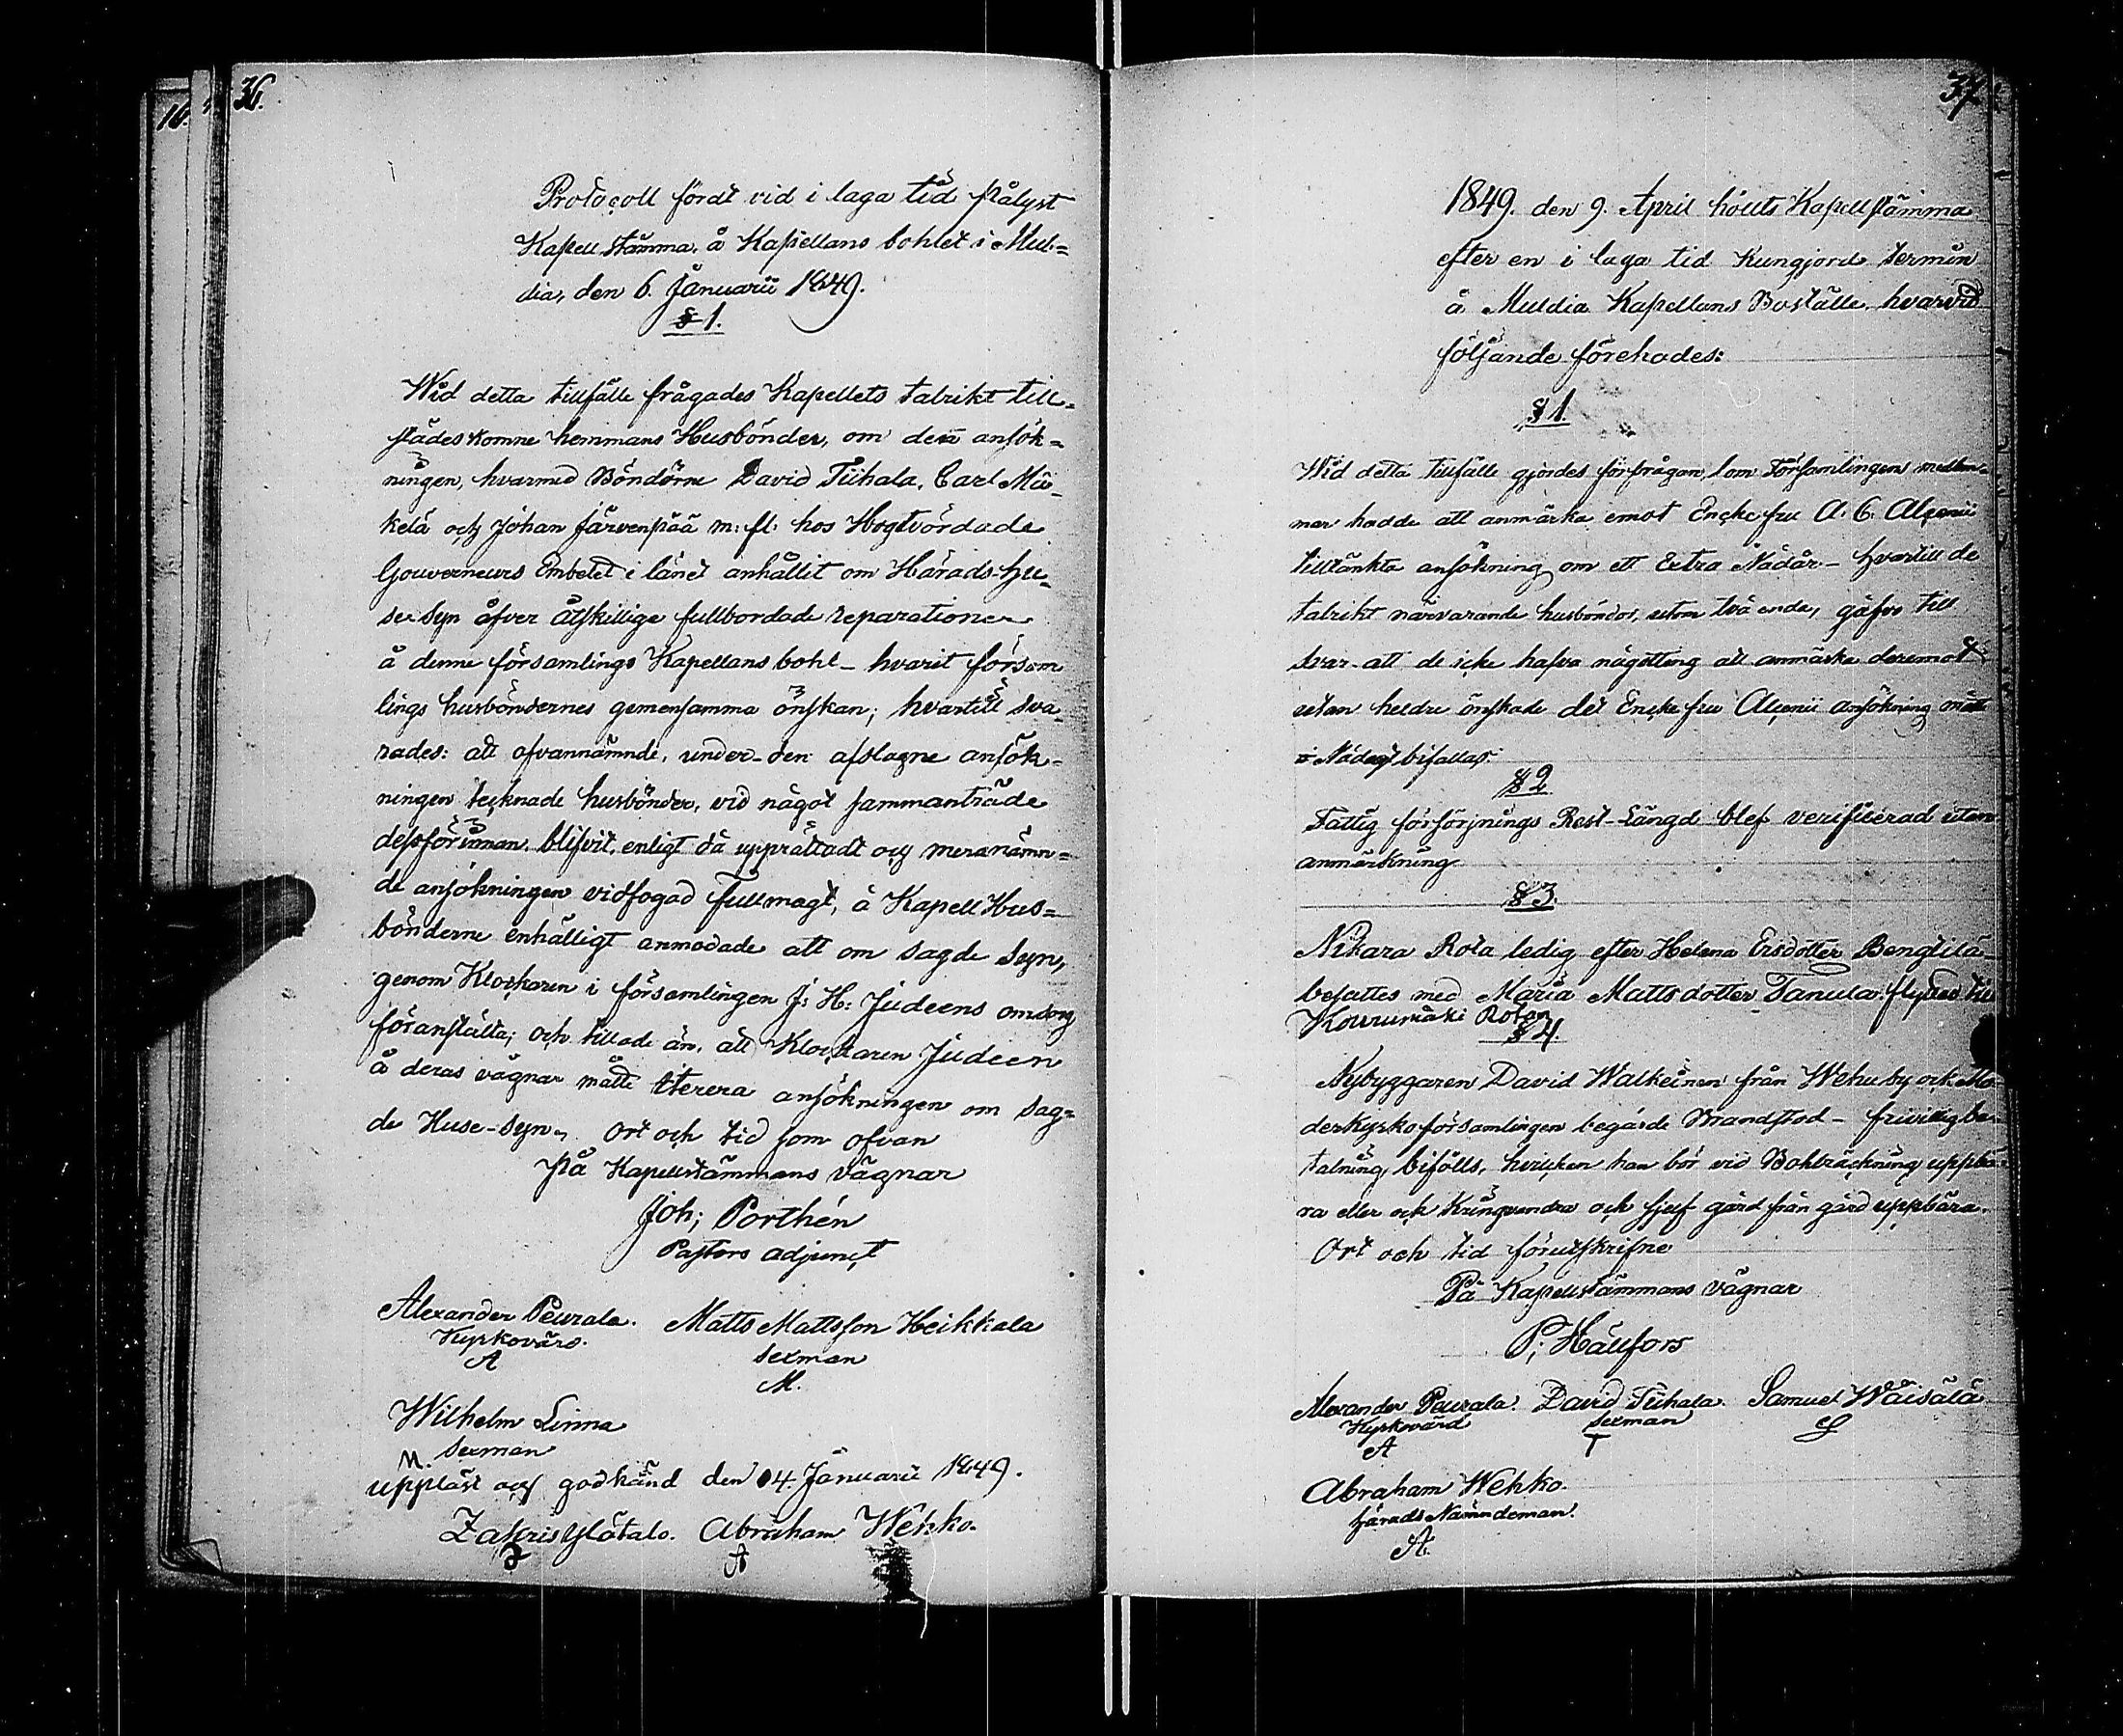 16.
36.
Protocoll fördt vid i laga tid pålyst
Kapellstämma, å Kapellans bohlet i Mul=
dia, den 6. Januarii 1849.
§ 1.
Wid detta tillfälle frågades Kapellets talrikt till=
städeskomne hemmans Husbönder, om den ansök=
ningen, hvarmed Bönderne David Tiihala, Carl Mä=
kelä och Johan Järvenpää m: fl: hos Högtvördade
Gouverneurs Embetet i länet anhållit om Härads-hu=
se-syn öfver åtskillige fullbordade reparationer
å denne församlings Kapellans bohl – hvarit försam
lings husböndernes gemensamma önskan; hvartill sva=
rades: att ofvannämnde, under den afslagne ansök=
ningen tecknade husbönder, vid något sammanträde
dessförinnan, blifvit, enligt då upprättadt och meranämn=
de ansökningen vidfogad Fullmagt, å Kapell Hus=
bönderne enhälligt anmodade att om sagde syn,
genom Klockaren i församlingen J: H: Judeens omsorg
föranstalta; och tillade än, att Klockaren Judeen
å deras vägnar måtte iterera ansökningen om sag=
de Huse-syn, Ort och tid som ofvan
På Kapellstämmans vägnar
Joh; Porthén
Pastors adjunct
Alexander Peurala. Matts Mattsson Heikkala
Kyrkovärd. sexman
A M.
Wilhelm Linna
M. sexman
uppläst och godkänd den 14. Januarii 1849.
Zakris Ylätalo. Abraham Wehko.
Z A
37
1849. den 9. April hölts Kapellstämma
efter en i laga tid Kungjord termin
å Muldia Kapellans Boställe, hvarvid
följande förehades:
§ 1.
Wid detta tillfälle gjordes förfrågan, om Församlingens medlem=
mar hade att anmärka emot Enckefru A. C. Alcenii
tilltänkta ansökning om ett Extra Nådår – hvartill de
talrikt närvarande husbönder, utom två enda, gåfvo till
svar att de icke hafva någotting att anmärka deremot
utan heldre önskade det Enckefru Alcenii ansökning måtte
i Nåder bifallas.
§ 2
Fattig försörjnings Rest-Längd blef verificerad utan
anmärkning
§ 3.
Nikara Rota ledig efter Helena Ersdotter Bengtilä
besattes med Maria Mattsdotter Tanula flyttad till
Kouvumäki Rotan
§ 4.
Nybyggaren David Walkeinen från Wehu by och Mo
derkyrkoförsamlingen begärde Brandstod – frivillig be=
talning bifölls, hvilcken han bör vid Bohträckning uppbä=
ra eller och Kringvandra och sjelf gård från gård uppbära.
Ort och tid förutskrifne
På Kapellstämmans vägnar
P; Hällfors
Alexander Peurala. David Tiihala. Samuel Wäisälä
Kyrkovärd sexman S
A T
Abraham Wehko.
härads Nämndeman.
A.